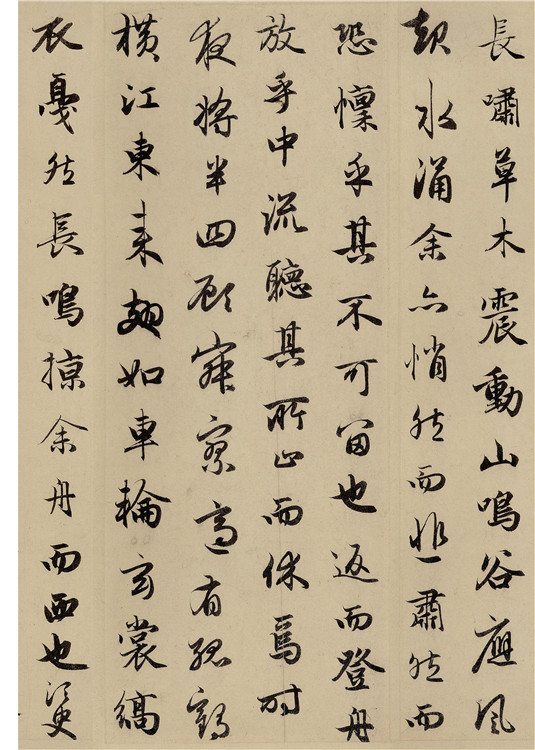 長嘯草木震動山鳴谷應風
起水涌余亦悄然而悲肅然而
恐懍乎其不可留也返而登舟
放乎中流聽其所止而休焉時
夜將半四顧寂寥適有孤鶴
橫江東來翅如車輪玄裳縞
衣戛然長鳴掠余舟而西也須臾